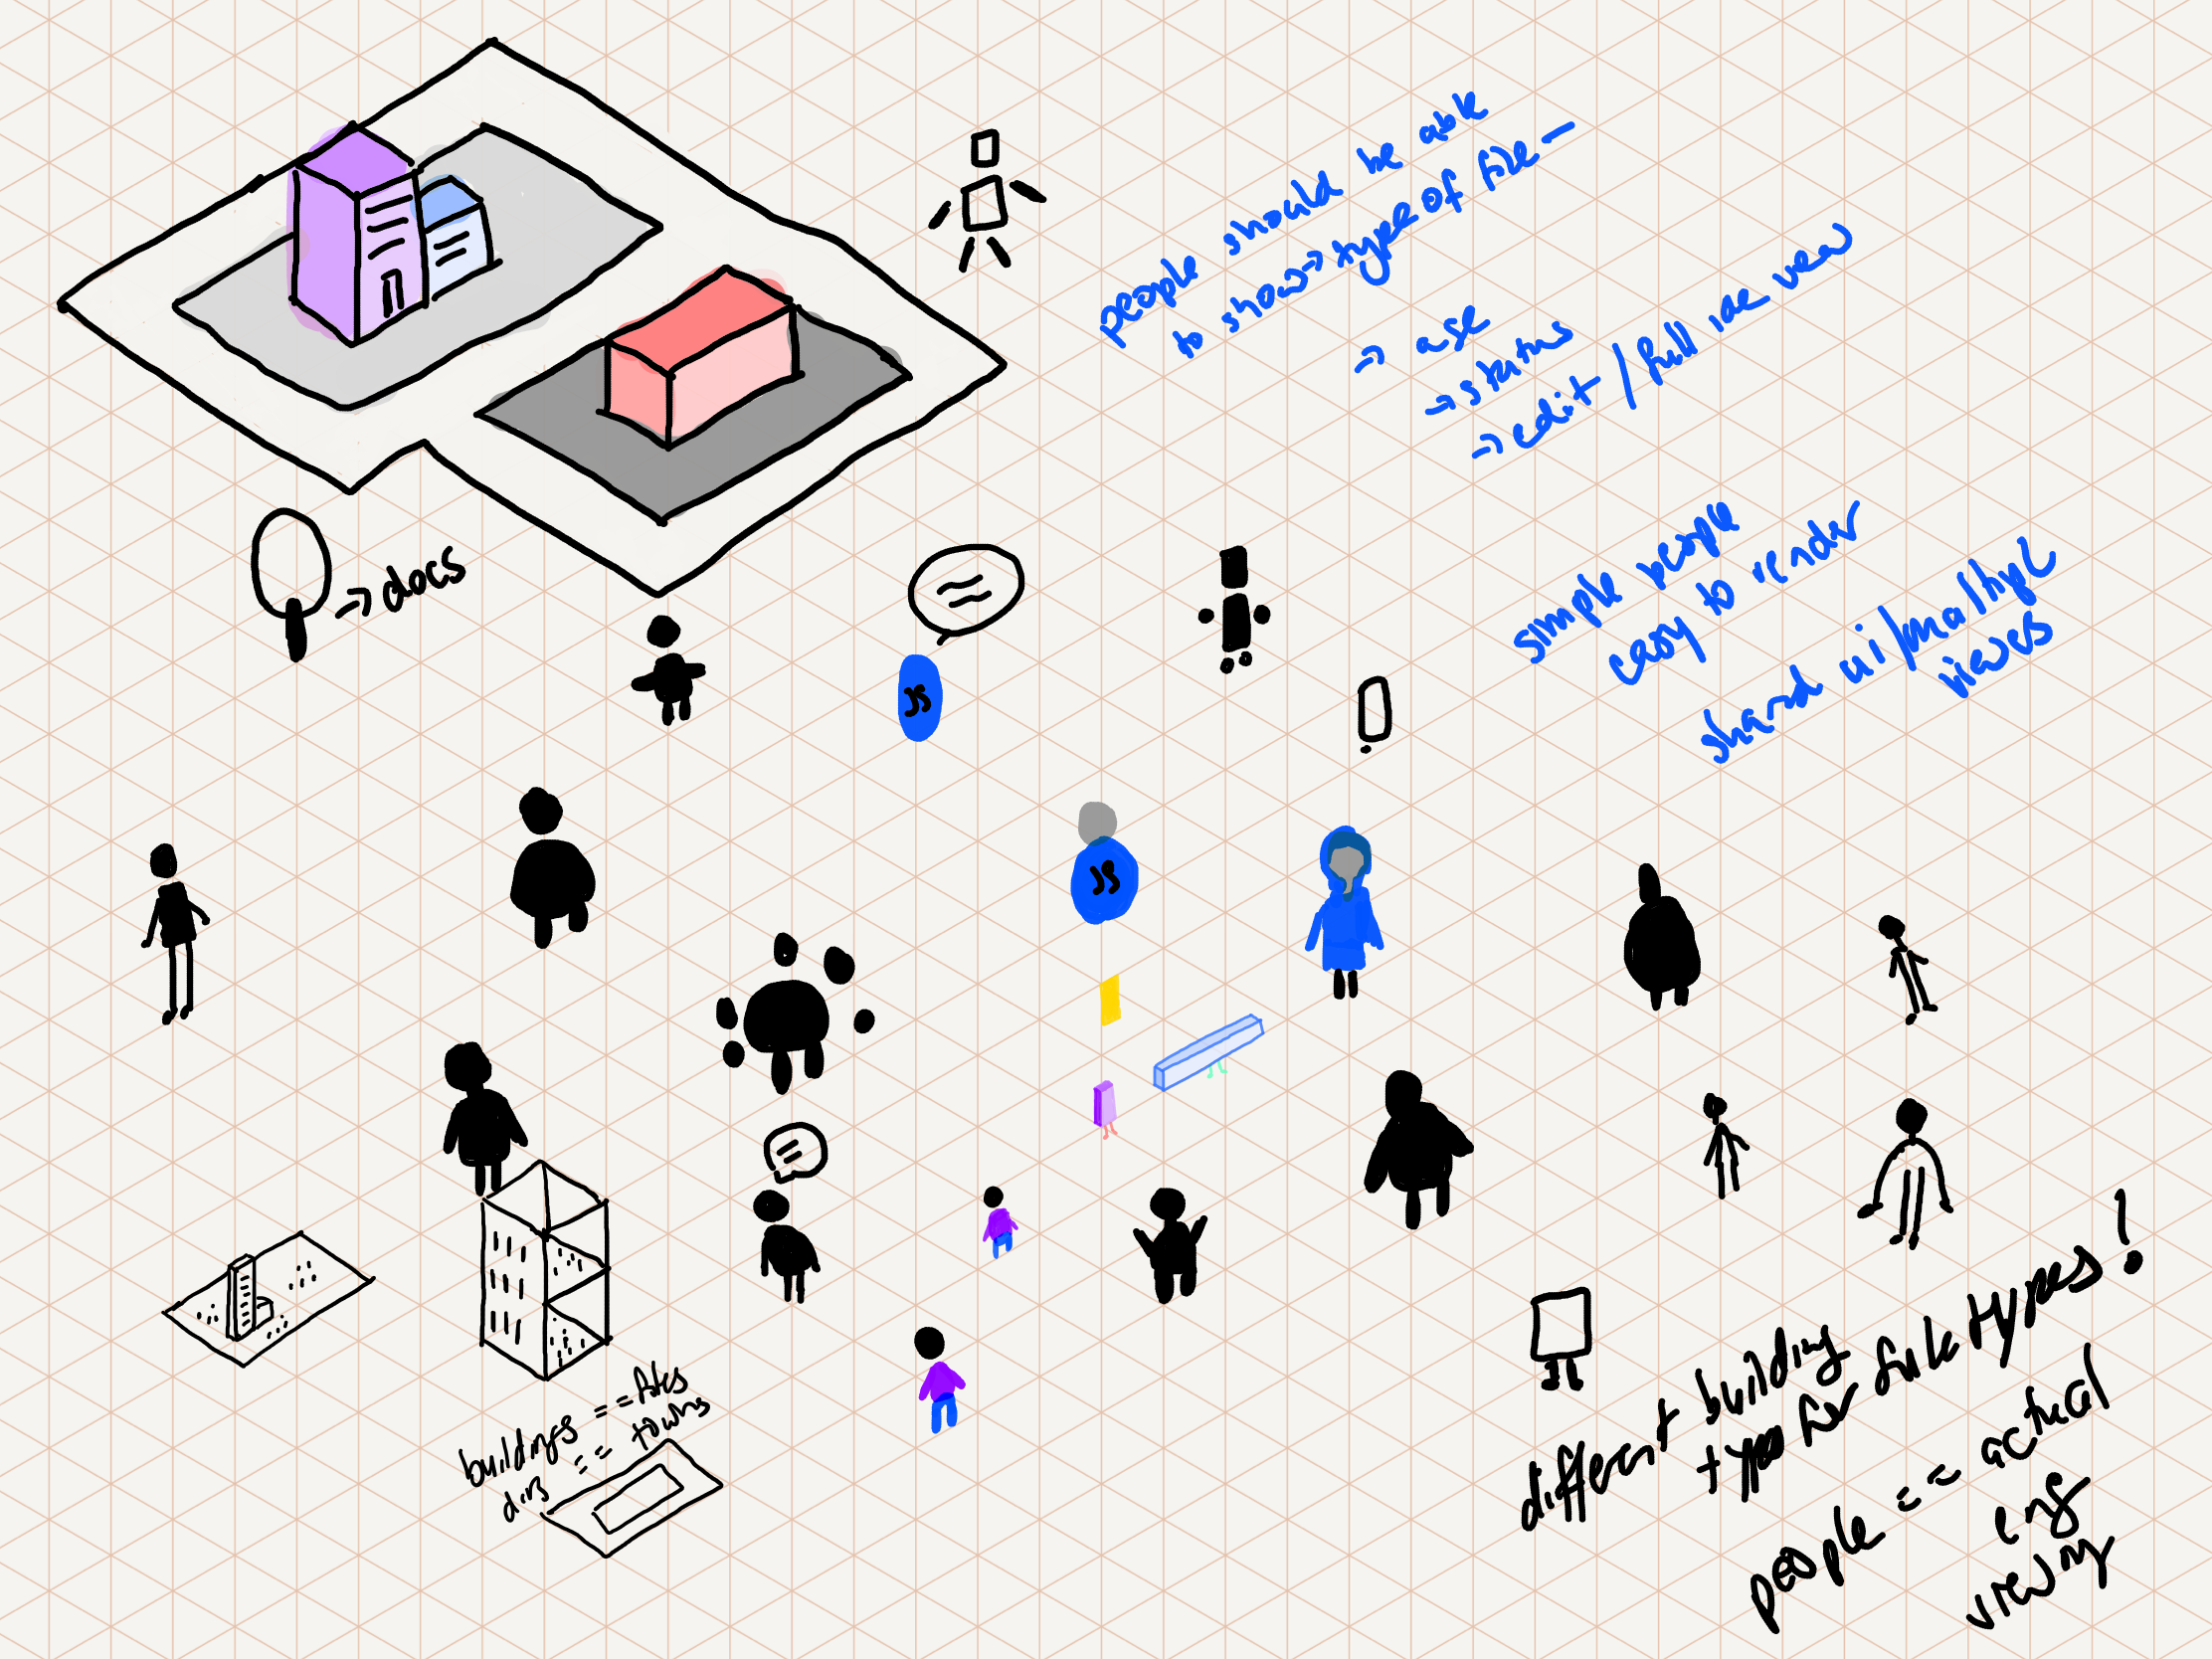 people should be able
to show → type of file —
→ age
→ status
→ edit / full view
→ docs
simple people
easy to render
shared ui/multiple
views
JS
JS
buildings == files
dirs == towns
different building
types for file types!
people == actual
eng
viewing